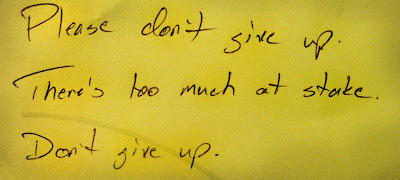 Please don't give up.
There's too much at stake.
Don't give up.